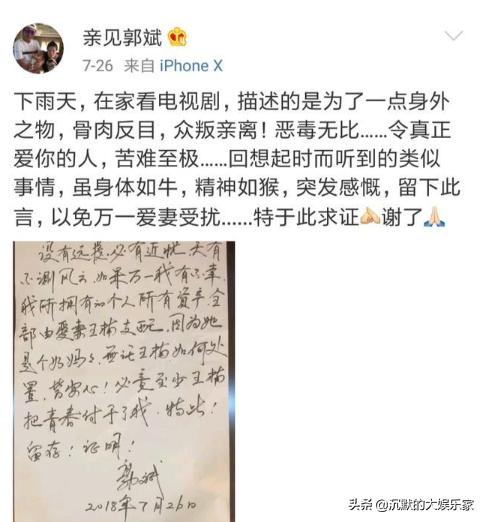 亲见郭斌
7-26 来自 iPhone X
下雨天，在家看电视剧，描述的是为了一点身外
之物，骨肉反目，众叛亲离！恶毒无比......令真正
爱你的人，苦难至极......回想起时而听到的类似
事情，虽身体如牛，精神如猴，突发感慨，留下此
言，以免万一爱妻受扰......特于此求证💪🏻谢了🙏🏻
没有远虑必有近忧，天有
不测风云，如果万一我有不幸
我所拥有的个人所有资产全
部由爱妻王楠支配，因为她
是个好妈妈，无论王楠如何处
置，皆安心！必竟至少王楠
把青春付予了我，特此！
留存！证明！
郭斌
2018年7月26日
头条 @沉默的大娱乐家